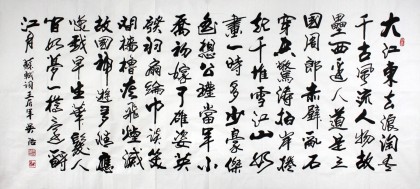 大江東去浪淘尽
千古風流人物故
壘西邊人道是三
國周郎赤壁亂石
穿空驚濤拍岸捲
起千堆雪江山如
畫一時多少豪傑
遙想公瑾當年小
喬初嫁了雄姿英
發羽扇綸巾談笑
間檣櫓灰飛煙滅
故國神遊多情應
笑我早生華髮人
間如夢一樽還酹
江月 蘇軾詞